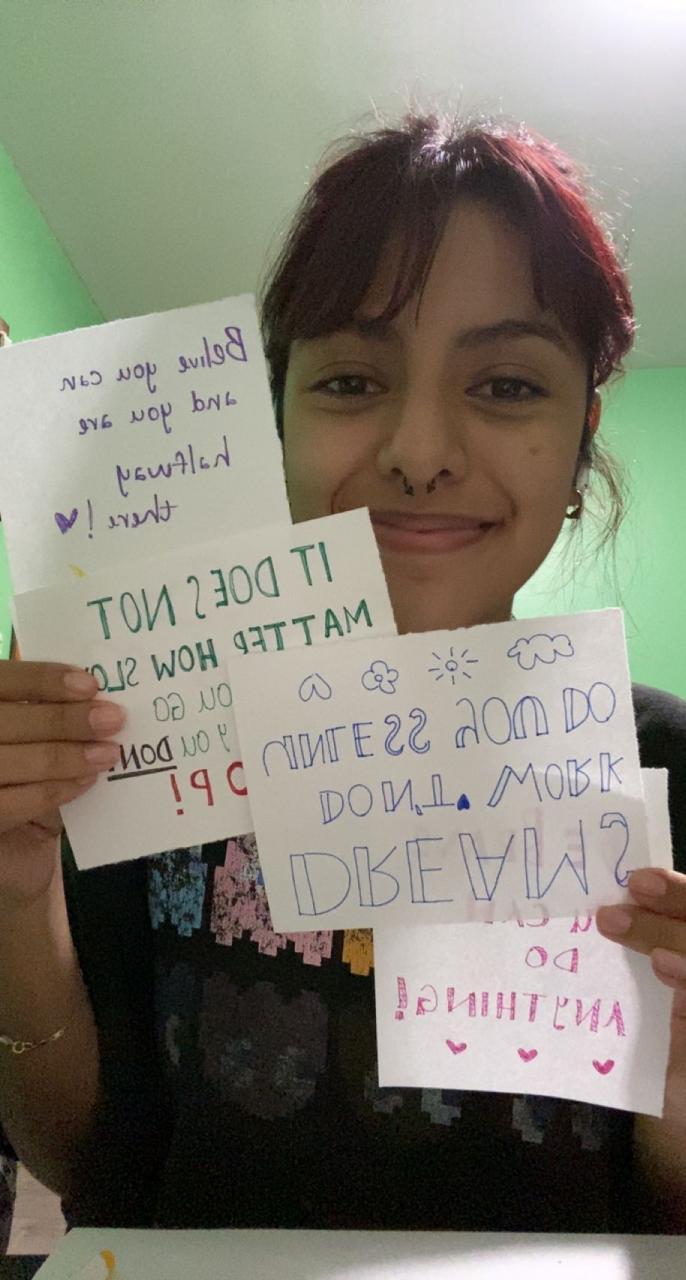 Belive you can
and you are
halfway
there!
IT DOES NOT
MATTER HOW SLO
OU GO
YOU DON'
OP!
DREAMS
DON'T WORK
UNLESS YOU DO
CAN
DO
ANYTHING!